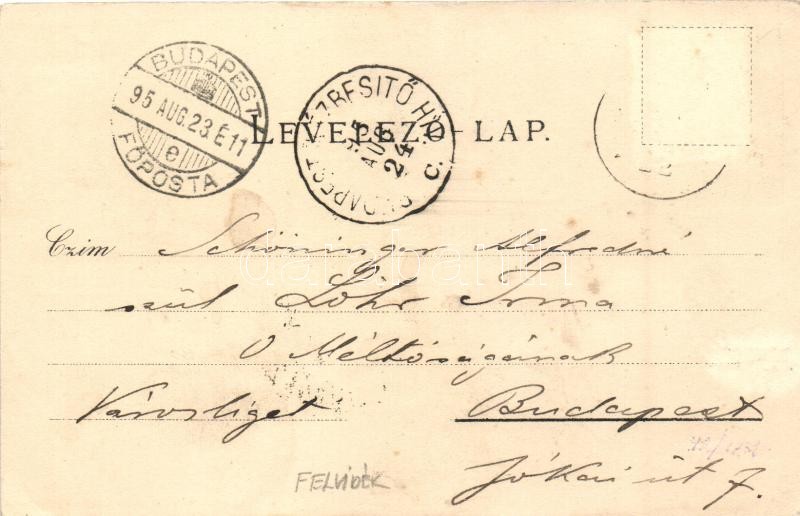 BUDAPEST
95 AUG. 23. É 11
e
FŐPOSTA
KÉZBESITŐ HIV.
95
AUG
24
C.
BUDAPEST
LEVELEZŐ-LAP.
Czim Schöninger Alfredné
szül Löhr Irma
Ő Méltóságának
Városliget Budapest
Jókai út 7.
FELVIDÉK